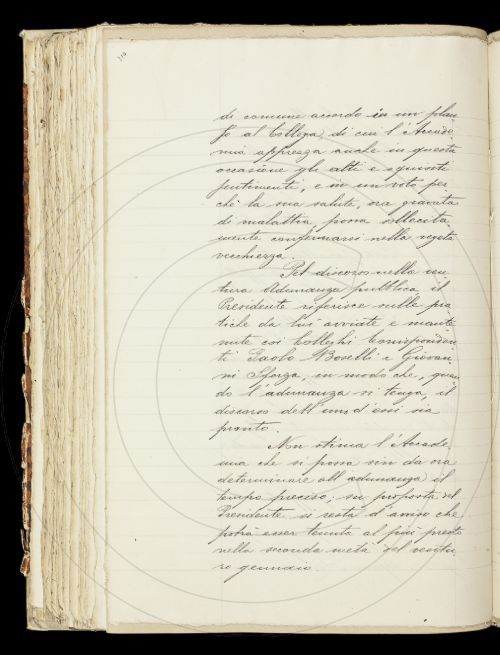 di comune accordo in un plau
so al Collega, di cui l'Accade
mia apprezza anche in questa
occasione gli alti e squisiti
sentimenti, e in un voto per
ché la sua salute, ora gravata
di malattia, possa sollecita
mente confermarsi nella vegeta
vecchiezza.
Pel discorso nella ven
tura Adunanza pubblica il
Presidente riferisce sulle pra
tiche da lui avviate e mante
nute coi Colleghi Corrisponden
ti Paolo Boselli e Giovan
ni Sforza, in modo che, quan
do l'adunanza si tenga, il
discorso dell'uno d'essi sia
pronto.
Non stima l'Accade
mia che si possa sin da ora
determinare all'adunanza il
tempo preciso; su proposta del
Presidente si resta d'avviso che
potrà esser tenuta al più presto
nella seconda metà del ventu
ro gennaio.